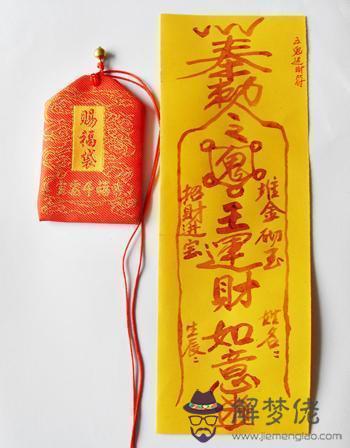 賜福袋
五鬼运财符
奉勅之鬼王運財如意
堆金砌玉
招財进宝
姓名:
生辰:
解梦佬
www.jiemenglao.com